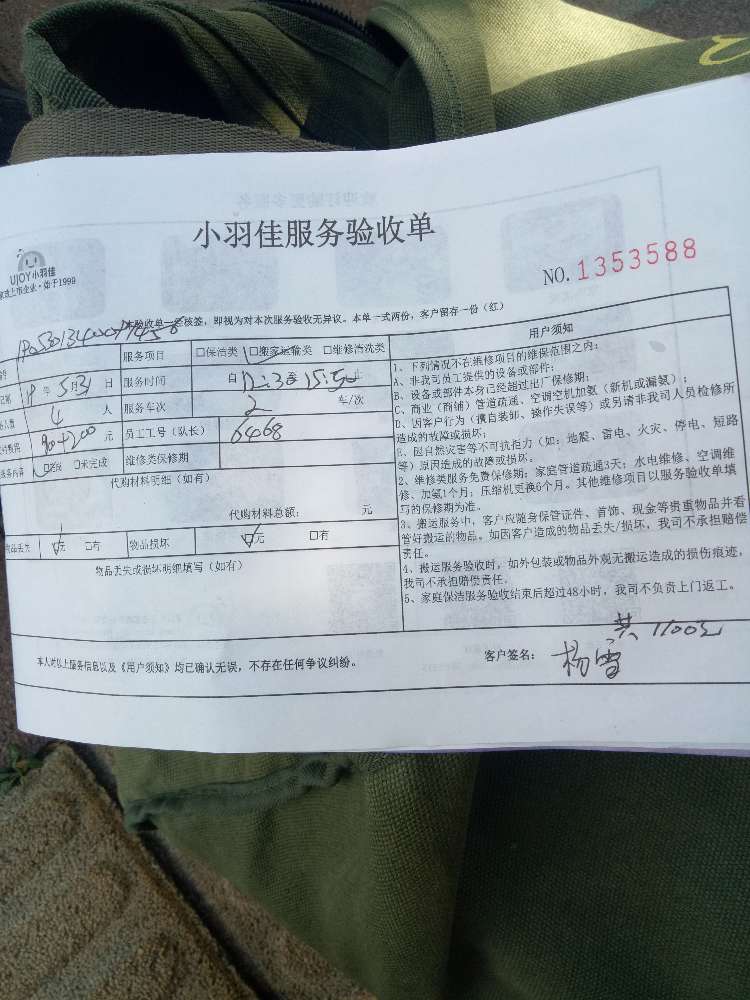 小羽佳服务验收单
UJOY小羽佳
家政上市企业·始于1999
NO. 1353588
本验收单一经核签，即视为对本次服务验收无异议。本单一式两份，客户留存一份（红）
服务项目 □保洁类 □搬家运输类 □维修清洗类
年 5月31 日 服务时间 自 至 15:50 止
4 人 服务车次 2 车/次
元 员工工号（队长） 6408
□完成 □未完成 维修类保修期
代购材料明细（如有）
代购材料总额： 元
物品丢失 □无 □有 物品损坏 □无 □有
物品丢失或损坏明细填写（如有）
用户须知
1、下列情况不在维修项目的维保范围之内：
A、非我司员工提供的设备或部件；
B、设备或部件本身已经超过出厂保修期；
C、商业（商铺）管道疏通、空调空机加氨（新机或漏氨）；
D、因客户行为（擅自装卸、操作失误等）或另请非我司人员检修所
造成的故障或损坏；
E、因自然灾害等不可抗拒力（如：地震、雷电、火灾、停电、短路
等）原因造成的故障或损坏。
2、维修类服务免费保修期：家庭管道疏通3天；水电维修、空调维
修、加氨1个月；压缩机更换6个月。其他维修项目以服务验收单填
写的保修期为准。
3、搬运服务中，客户应随身保管证件、首饰、现金等贵重物品并看
管好搬运的物品。如因客户造成的物品丢失/损坏，我司不承担赔偿
责任。
4、搬运服务验收时，如外包装或物品外观无搬运造成的损伤痕迹，
我司不承担赔偿责任。
5、家庭保洁服务验收结束后超过48小时，我司不负责上门返工。
共 1100元
本人对以上服务信息以及《用户须知》均已确认无误，不存在任何争议纠纷。 客户签名： 杨雪